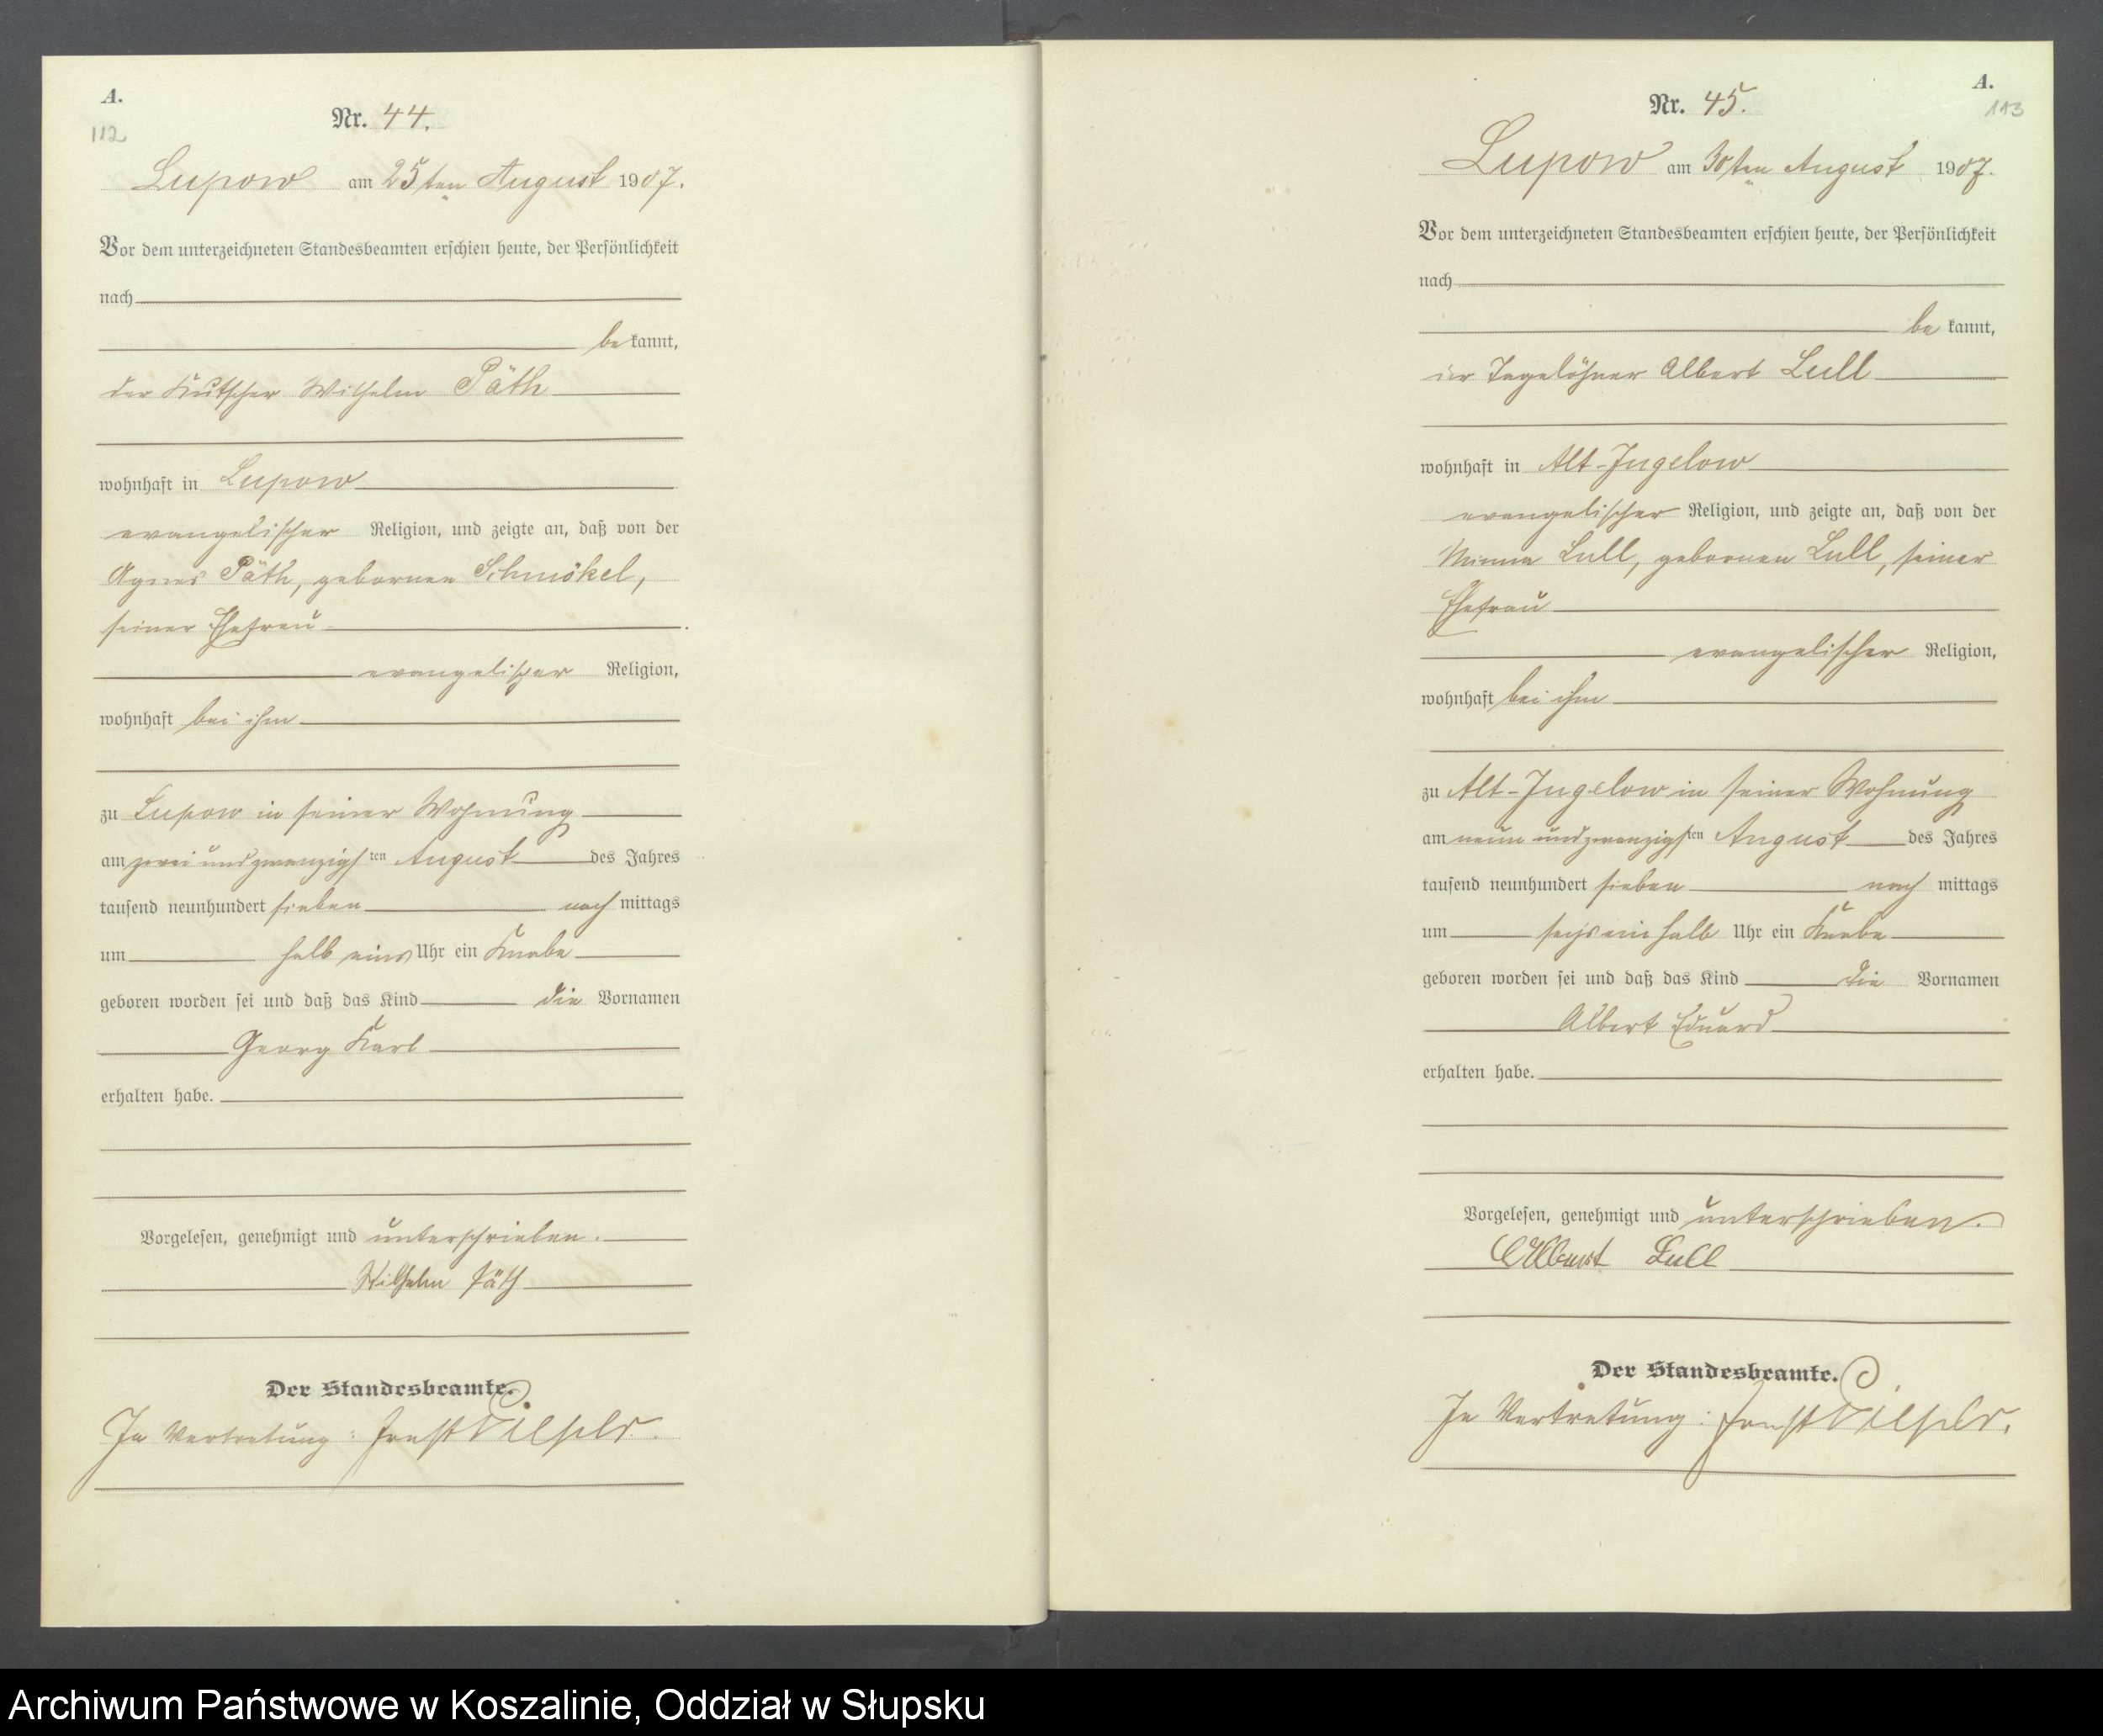 A.
112
Nr. 44.
Lupow am 25ten August 1907.
Vor dem unterzeichneten Standesbeamten erschien heute, der Persönlichkeit
nach
be kannt,
der Kutscher Wilhelm Päth
wohnhaft in Lupow
evangelischer Religion, und zeigte an, daß von der
Agnes Päth, gebornen Schmökel,
seiner Ehefrau
evangelischer Religion,
wohnhaft bei ihm
zu Lupow in seiner Wohnung
am zwei und zwanzigsten August des Jahres
tausend neunhundert sieben nach mittags
um halb eins Uhr ein Knabe
geboren worden sei und daß das Kind die Vornamen
Georg Karl
erhalten habe.
Vorgelesen, genehmigt und unterschrieben.
Wilhelm Päth
Der Standesbeamte.
In Vertretung: Ernst
A.
113
Nr. 45.
Lupow am 30ten August 1907.
Vor dem unterzeichneten Standesbeamten erschien heute, der Persönlichkeit
nach
be kannt,
der Tagelöhner Albert Lull
wohnhaft in Alt-Jugelow
evangelischer Religion, und zeigte an, daß von der
Minna Lull, gebornen Lull, seiner
Ehefrau
evangelischer Religion,
wohnhaft bei ihm
zu Alt-Jugelow in seiner Wohnung
am neun und zwanzigsten August des Jahres
tausend neunhundert sieben nach mittags
um sechs ein halb Uhr ein Knabe
geboren worden sei und daß das Kind die Vornamen
Albert Eduard
erhalten habe.
Vorgelesen, genehmigt und unterschrieben.
Albert Lull
Der Standesbeamte.
In Vertretung: Ernst
Archiwum Państwowe w Koszalinie, Oddział w Słupsku